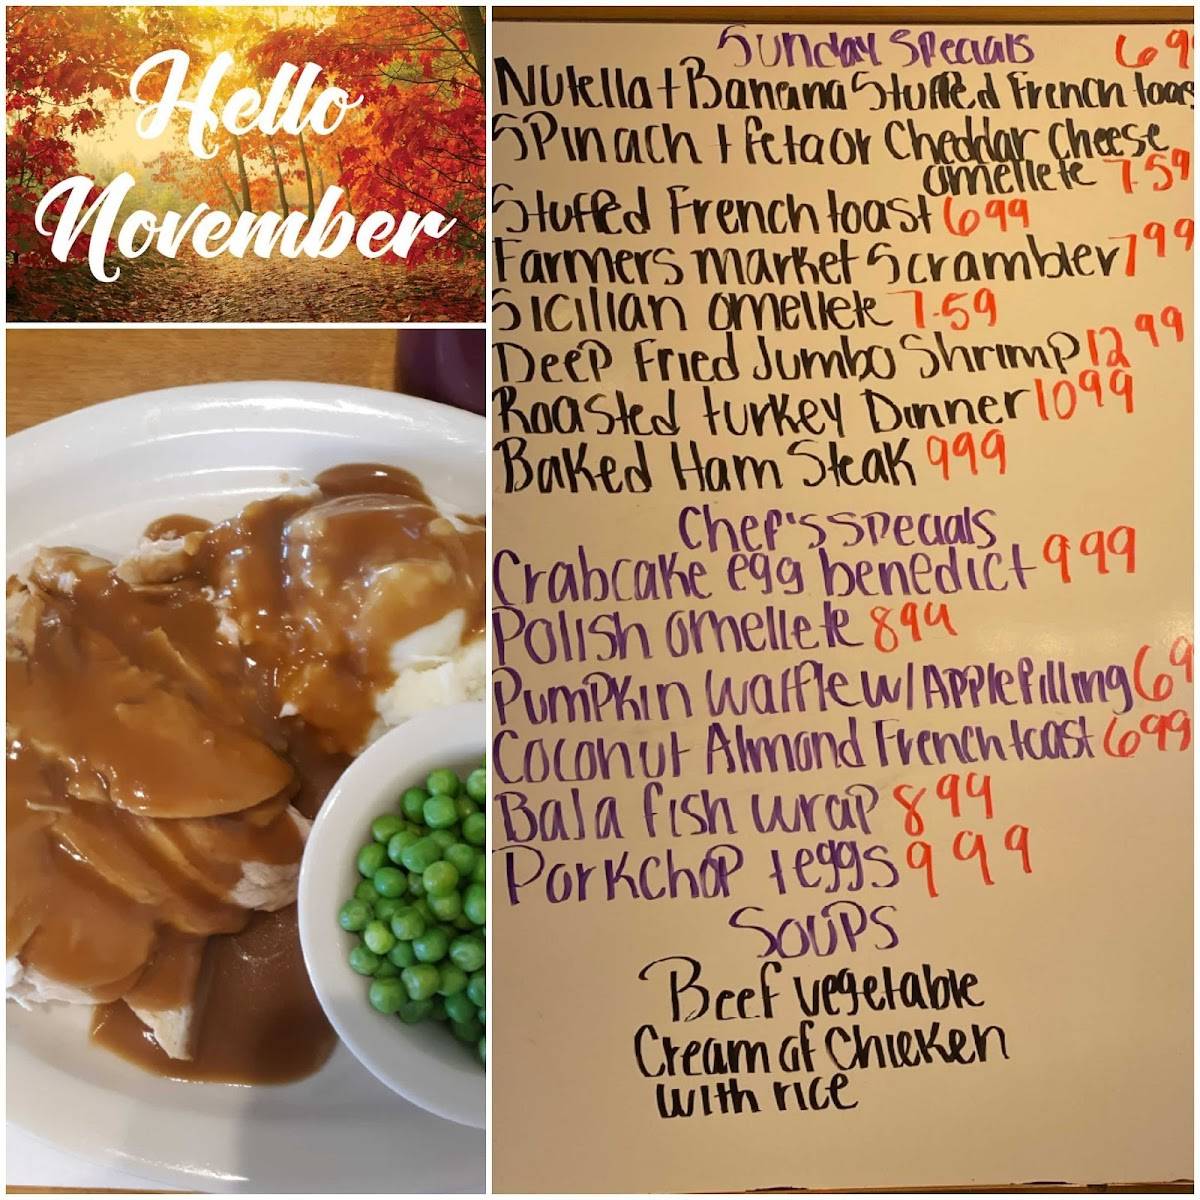 Hello
November
Sunday Specials 69
Nutella + Banana Stuffed French toas
Spinach + feta or Cheddar Cheese
omellete 7.59
Stuffed French toast 699
Farmers market Scrambler 799
Sicilian omellete 7.59
Deep Fried Jumbo Shrimp 12 99
Roasted turkey Dinner 1099
Baked Ham Steak 999
Chef's specials
Crabcake egg benedict 999
Polish omellete 899
Pumpkin waffle w/Apple filling 69
Coconut Almond French toast 699
Baja fish wrap 899
Porkchop + eggs 999
Soups
Beef vegetable
Cream of Chicken
with rice